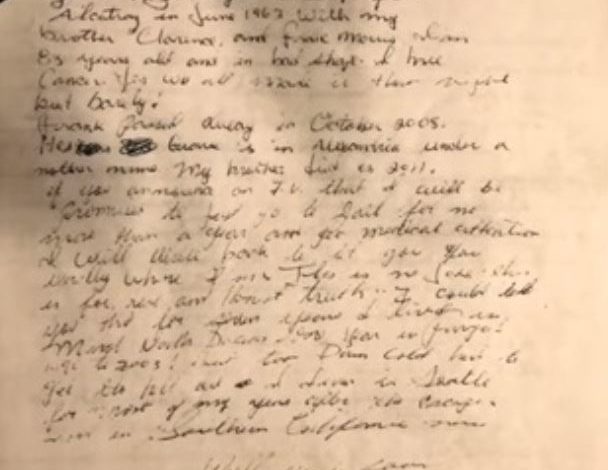 Alcatraz in June 1962 with my
brother Clarence, and Frank Morris. I am
83 years old and in bad shape. I have
Cancer. Yes we all made it that night
but barely!
Frank passed away in October 2008.
His grave is in Alexandria under a
nother name. My brother died in 2011.
if you announce on T.V. that I will be
promised to first go to Jail for no
more than a year and get medical attention
I will back to let you
know where I am. This is no Joke this
is for real and honest truth. I could tell
you that for seven years I lived in
Minot North Dakota and year in Fargo
till 2003!
I in Seattle
for most of my years after the escape.
in Southern California now